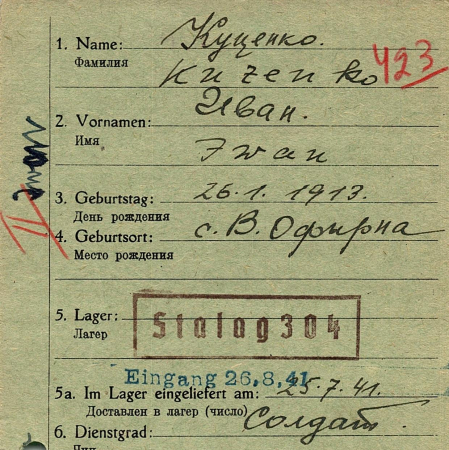 1. Name: Куценко.
Фамилия Kuzenko 423
Иван.
2. Vornamen:
Имя Iwan
3. Geburtstag: 26.1.1913.
День рождения
4. Geburtsort: с. В. Офирна
Место рождения
5. Lager: Stalag 304
Лагер
Eingang 26.8.41
5a. Im Lager eingeliefert am: 25.7.41.
Доставлен в лагер (число) Солдат.
6. Dienstgrad:
Чин